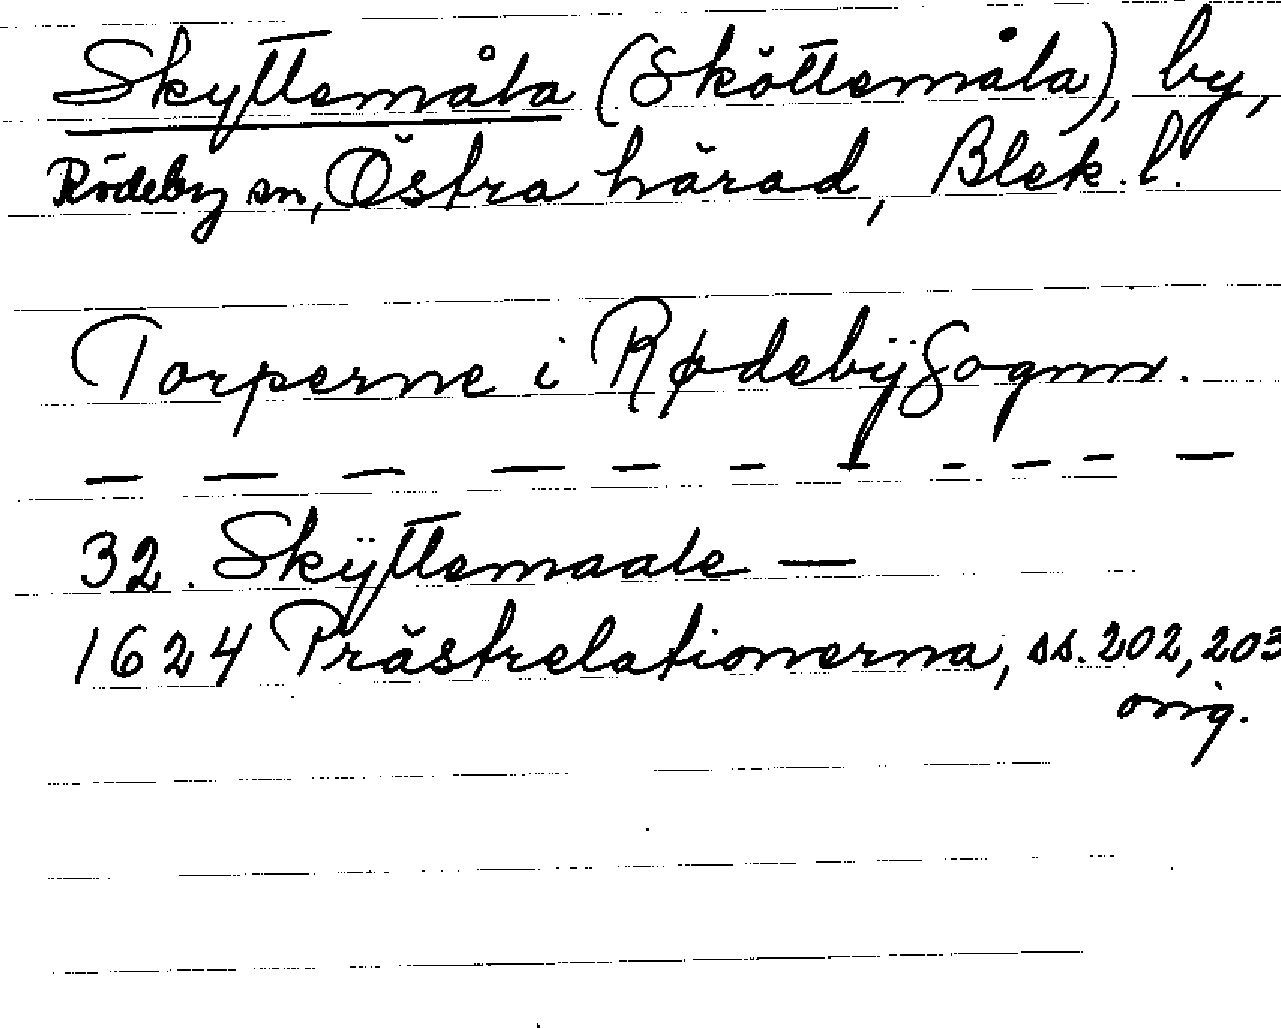 Skyttemåla (Sköttemåla), by,
Rödeby sn, Östra härad, Blek. l.
Torperne i Rødebÿ Sognn.
— — — — — — — — — — —
32. Skÿttemaale —
1624 Prästrelationerna, ss. 202, 203
orig.